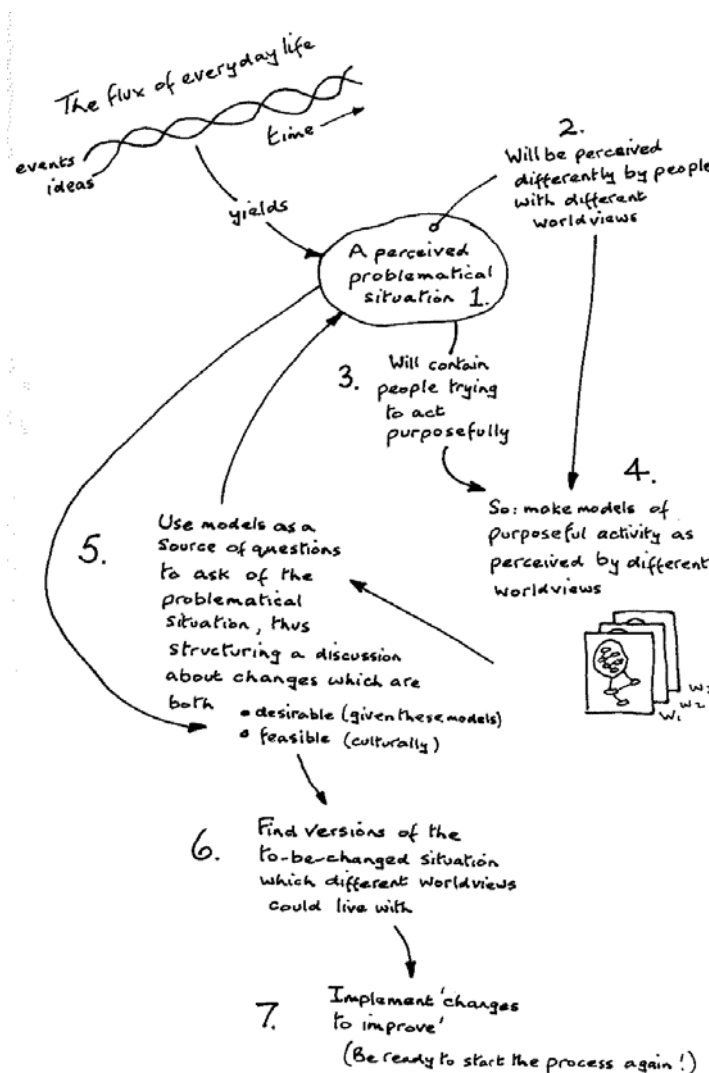 The flux of everyday life
time
events
ideas
yields
2.
Will be perceived
differently by people
with different
worldviews
A perceived
problematical
situation 1.
3. Will contain
people trying
to act
purposefully
4.
So: make models of
purposeful activity as
perceived by different
worldviews
W1
W2
5. Use models as a
source of questions
to ask of the
problematical
situation, thus
structuring a discussion
about changes which are
both
• desirable (given these models)
• feasible (culturally)
6. Find versions of the
to-be-changed situation
which different worldviews
could live with
7. Implement 'changes
to improve'
(Be ready to start the process again!)